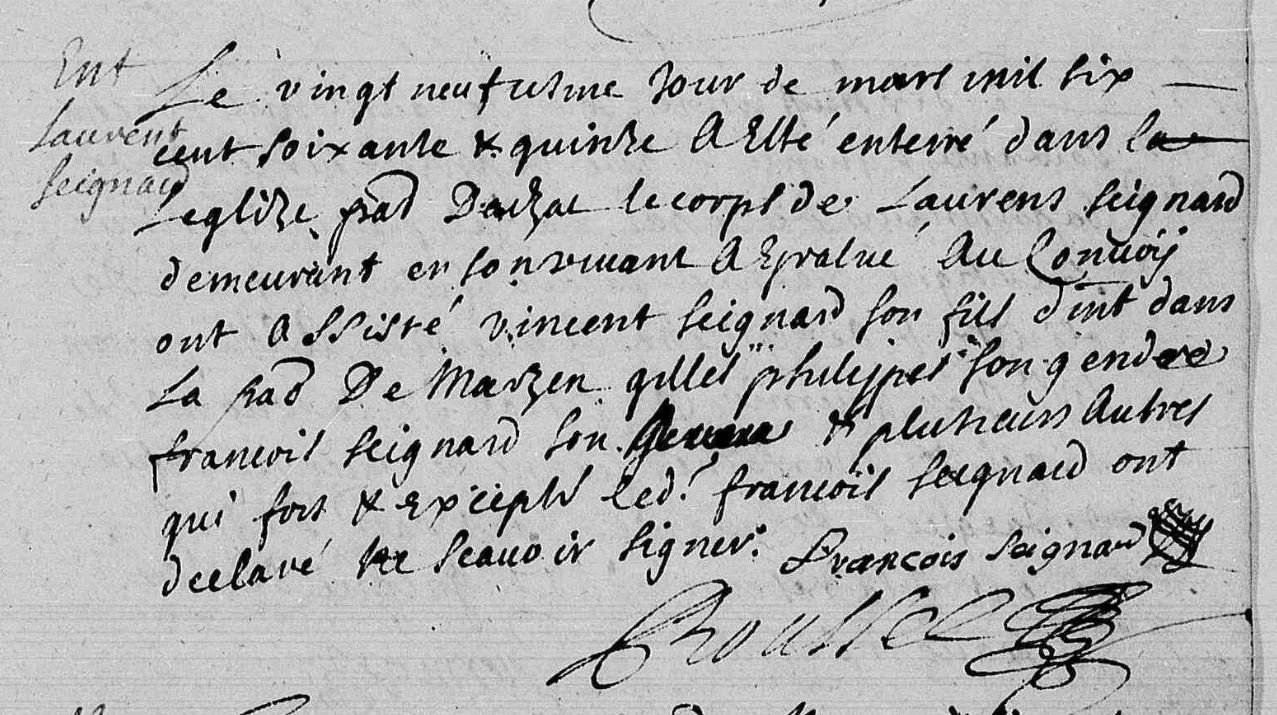 Ent
Laurent
seignard
Le vingt neufviesme Jour de mars mil six
cent soixante & quinze A Esté enterré dans la
Leglize par d Darzal le corps de Laurens seignard
demeurant en son vivant A Au Convoij
ont Assisté vincent seignard son fils dnt dans
La par De Marzen gilles philippes son gendre
francois seignard son & plusieurs Autres
qui fors & excepté led. francois seignard ont
declaré ne scavoir signer. François Seignard
Roussel